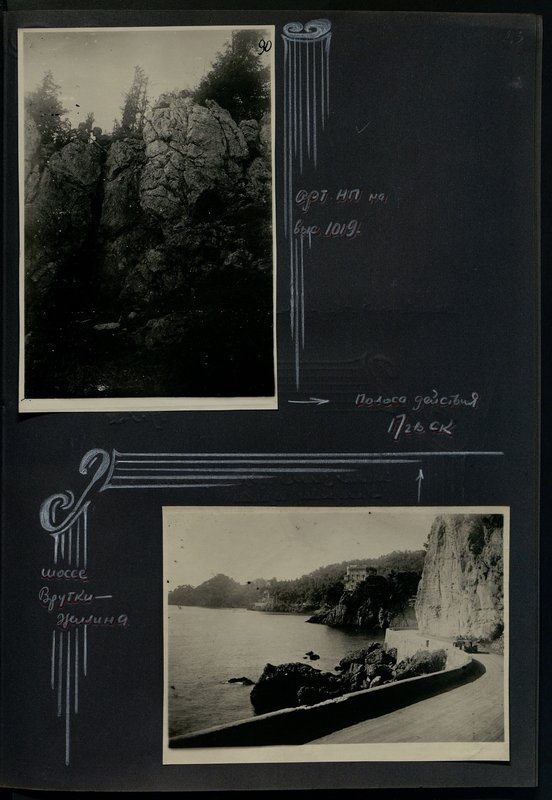 90
23
Арт. НП на
выс 1019.
Полоса действия
17 гв ск
шоссе
Врутки—
Жилина